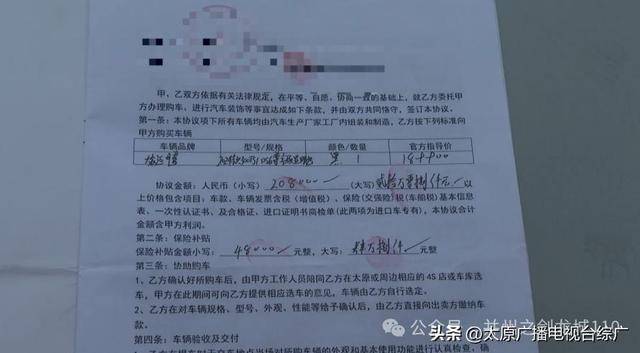 甲、乙双方依据有关法律规定,在平等、自愿、协商一致的基础上,就乙方委托甲
方办理购车、进行汽车装饰等事宜达成如下条款,并由双方共同恪守,签订本协议。
第一条:本协议项下所有车辆均由汽车生产厂家工厂内组装和制造,乙方按下列标准向
甲方购买车辆
车辆品牌 型号/规格 颜色/数量 官方指导价
黑 1
协议金额:人民币(小写)208000元(大写)贰拾万零捌仟元 以
上价格包含项目:车款、车辆发票含税(增值税)、保险(交强险)税(车船税)基本信息
表、一次性认证书、及合格证、进口证明书商检单(此两项为进口车专有),本协议合计
金额含甲方利润。
第二条:保险补贴
保险补贴金额小写:48000元整,大写:肆万捌仟元整。
第三条:协助购车
1、乙方确认好所购车后,由甲方工作人员陪同乙方在太原或周边相应的4S店或车库选
车,甲方在此期间可向乙方提供相应选车的意见,车辆由乙方自行选定。
2、乙方在对车辆规格、型号、外观、性能等给予确认后,由乙方直接向出卖方缴纳车
款。
第四条:车辆验收及交付
公众号·并州之剑龙城110
头条 @太原广播电视台综广